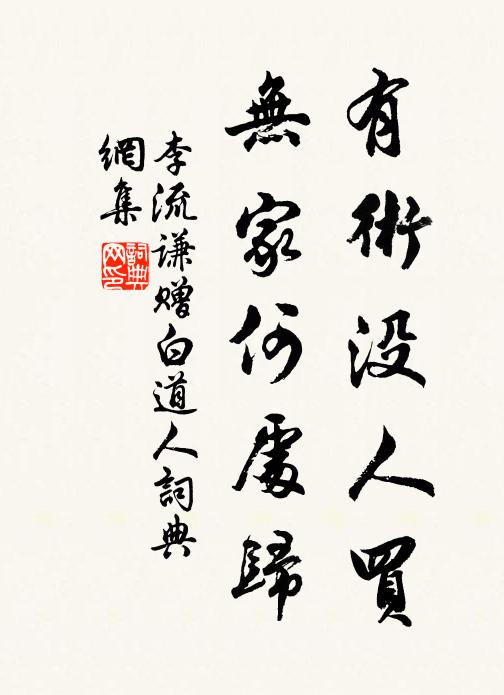 有術没人買
無家何處歸
李流謙贈白道人詞典
網集
詞典網印